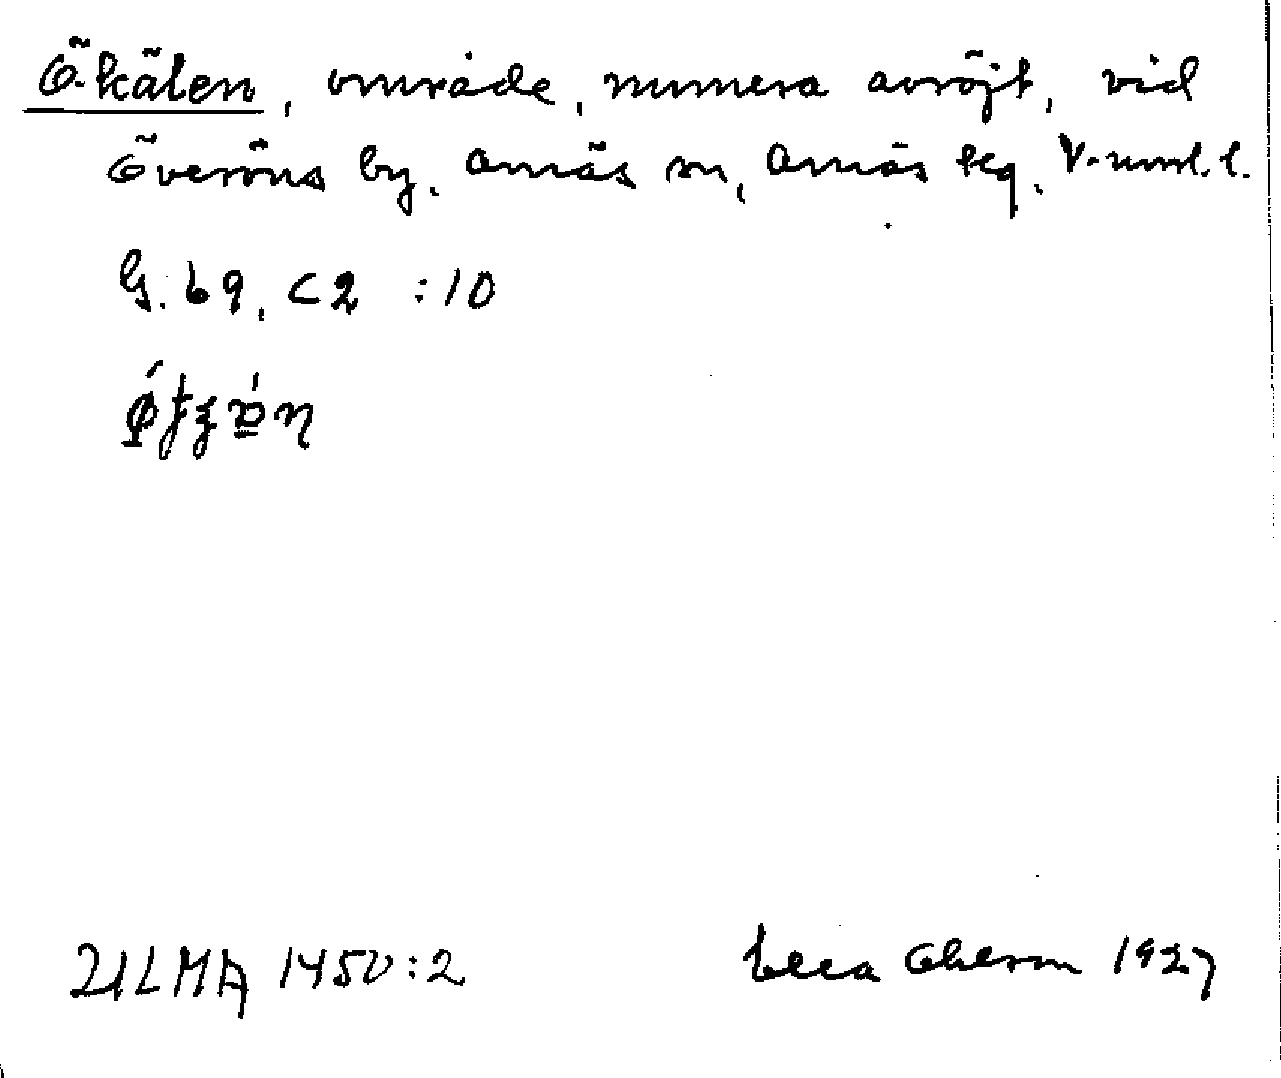 Ökälen, område, numera avröjt, vid
Överöns by, Arnäs sn, Arnäs tlg, V-nml. l.
G. 69, C2 :10
ULMA 1450:2
Ella Olsson 1927